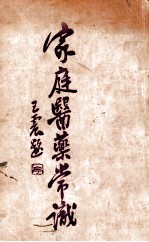 家庭醫藥常識
王震題